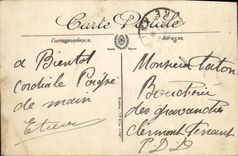 Carte Postale
Correspondance
Adresse
a Bientot
Cordiale Poigné
de main
Etienne
Monsieur
Boucherie
des gravanches
Clermont Ferrant
P.D.D